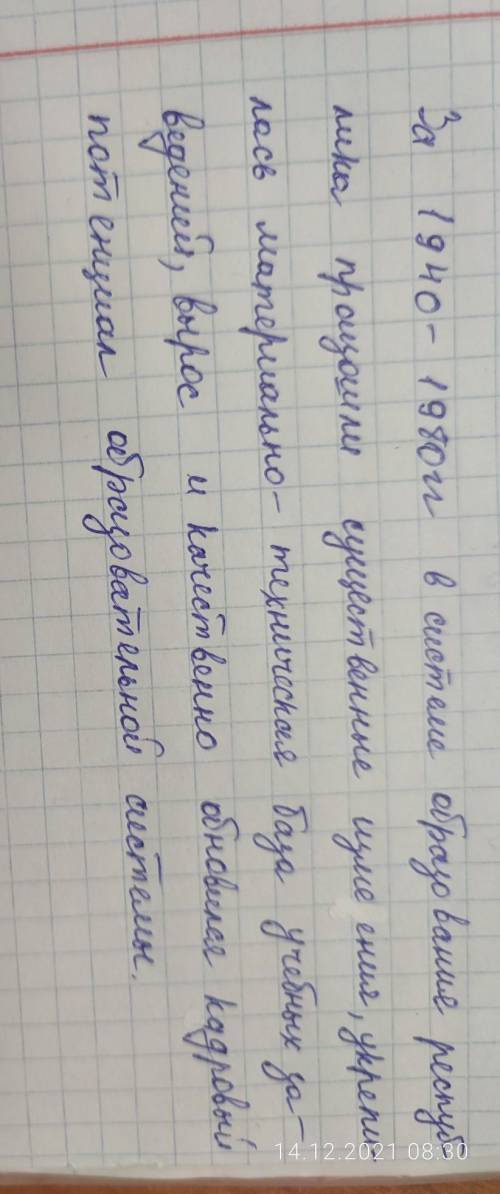 За 1940-1980гг в системе образования респуб
лики произошли существенные изме ения, укрепи
лась материально-техническая база учебных за-
ведений, вырос и качественно обновился кадровый
потенциал образовательной системы.
14.12.2021 08:30